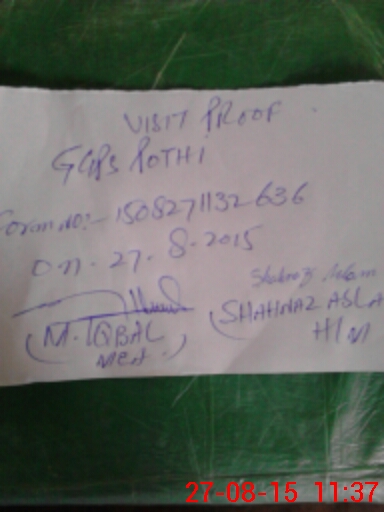 VISIT PROOF
GGPS POTHI
Form No:- 1508271132636
On. 27. 8. 2015
Shahnaz Aslam
(M. IQBAL
(SHAHNAZ ASLA
MEA.)
H/M
27-08-15 11:37